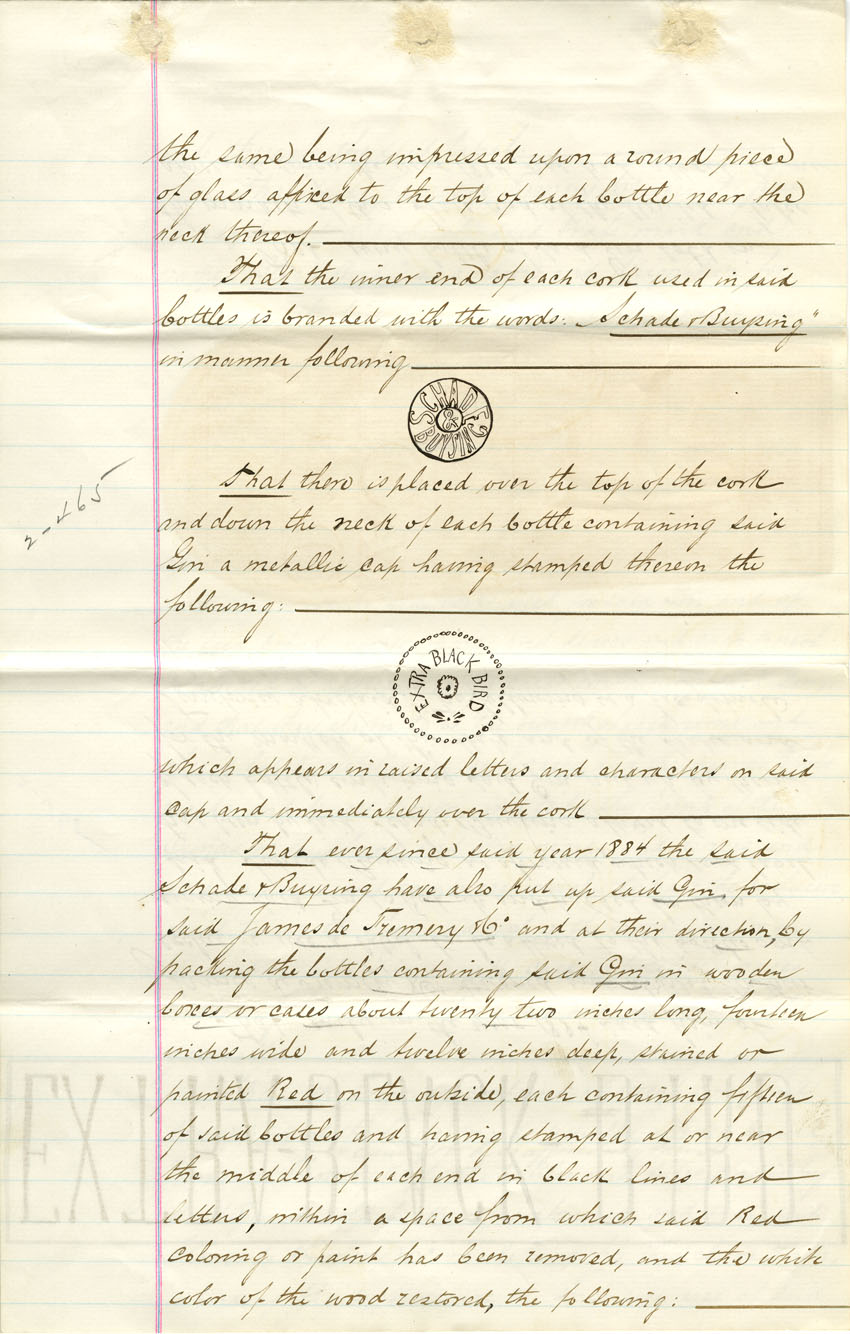 the same being impressed upon a round piece
of glass affixed to the top of each bottle near the
neck thereof.
That the inner end of each cork used in said
bottles is branded with the words: "Schade & Buysing"
in manner following
SCHADE & BUYSING
2-465
That there is placed over the top of the cork
and down the neck of each bottle containing said
Gin a metallic cap having stamped thereon the
following:
EXTRA BLACK BIRD
which appears in raised letters and characters on said
cap and immediately over the cork
That ever since said year 1884 the said
Schade & Buysing have also put up said Gin, for
said James de Fremery & Co and at their direction, by
packing the bottles containing said Gin in wooden
boxes or cases about twenty two inches long, fourteen
inches wide and twelve inches deep, stained or
painted Red on the outside, each containing fifteen
of said bottles and having stamped at or near
the middle of each end in black lines and
letters, within a space from which said Red
coloring or paint has been removed, and the white
color of the wood restored, the following: